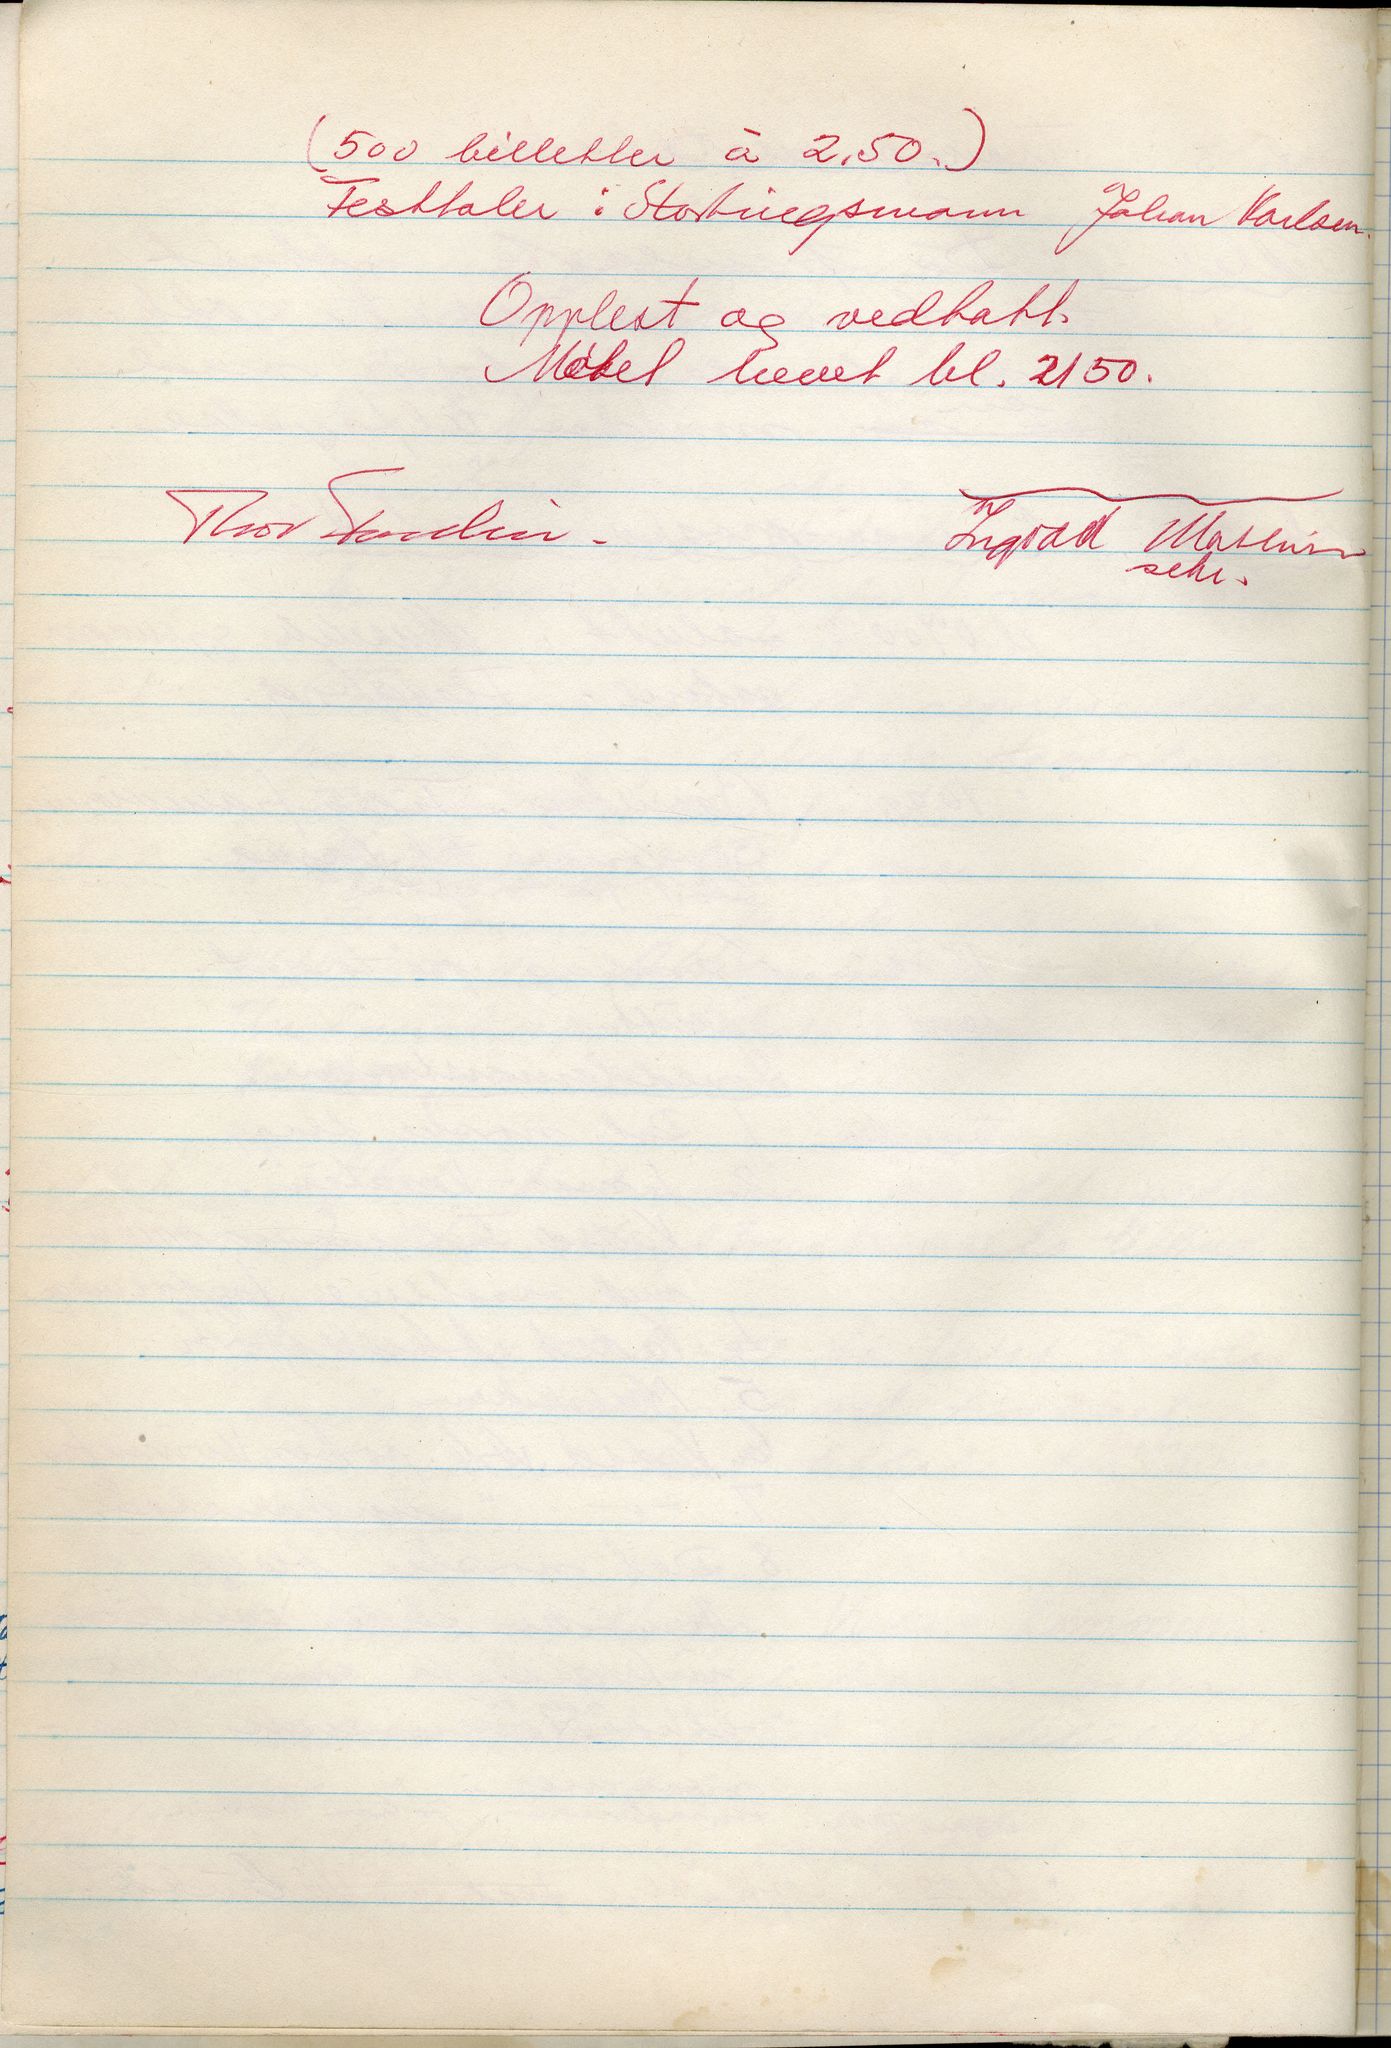 (500 billetter à 2,50.)
Festtaler: Stortingsmann Johan Karlsen.
Opplest og vedtatt.
Møtet hevet kl. 2150.
Thor Sundlin.
Ingvald Mathisen
sekr.